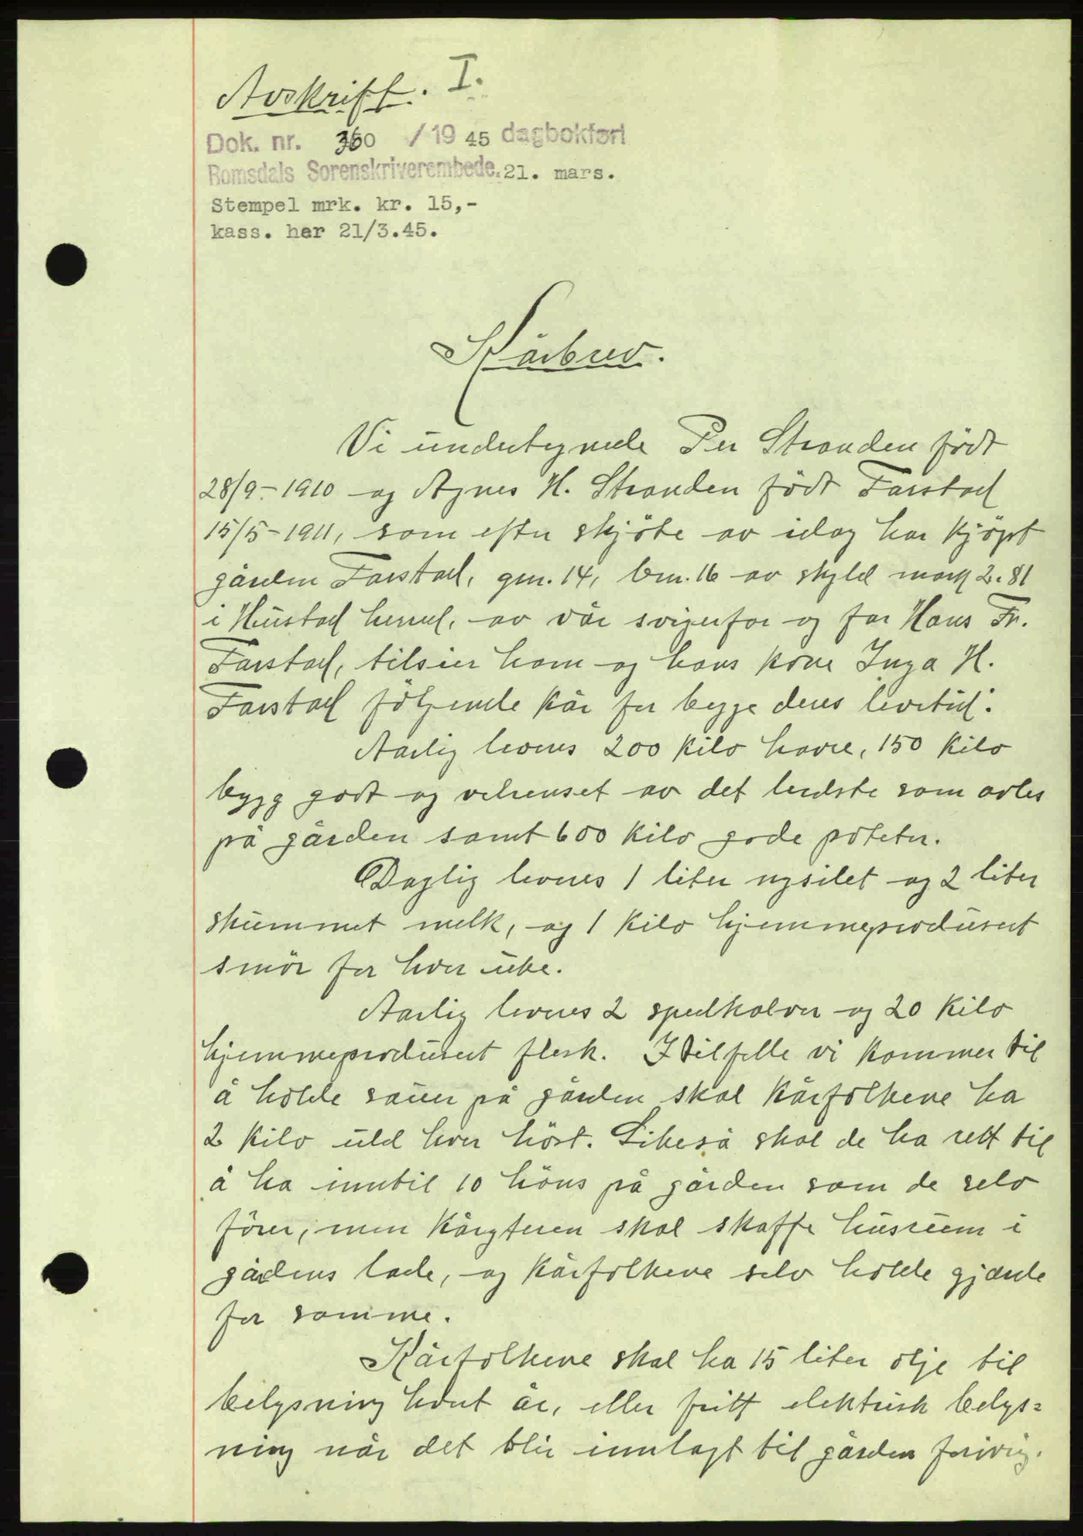 Avskrift. I.
Dok. nr. 360 / 19 45 dagbokført
Romsdals Sorenskriverembede. 21. mars.
Stempel mrk. kr. 15,-
kass. her 21/3.45.
Kårbrev.
Vi undertegnede Per Stranden født
28/9.-1910 og Agnes H. Stranden født Farstad
15/5-1911, som efter skjöte av idag har kjöpt
gården Farstad, gnr. 14, bnr. 16 av skyld mark 2.81
i Hustad herred, av vår svigerfar og far Hans Fr.
Farstad, tilsier ham og hans kone Inga H.
Farstad fölgende kår for begge deres levetid:
Aarlig leveres 200 kilo havre, 150 kilo
bygg godt og velrenset av det bedste som avles
på gården samt 600 kilo gode poteter.
Daglig leveres 1 liter nysilet og 2 liter
skummet melk, og 1 kilo hjemmeprodusert
smör for hver uke.
Aarlig leveres 2 spedkalver og 20 kilo
hjemmeprodusert flesk. I tilfelle vi kommer til
å holde sauer på gården skal kårfolkene ha
2 kilo uld hver höst. Likeså skal de ha rett til
å ha inntil 10 höns på gården som de selv
förer, men kårgteren skal skaffe husrum i
gårdens lade, og kårfolkene selv holde gjærde
for samme.
Kårfolkene skal ha 15 liter olje til
belysning hvert år, eller fritt elektrisk belys=
ning når det blir innlagt til gården forövrig.